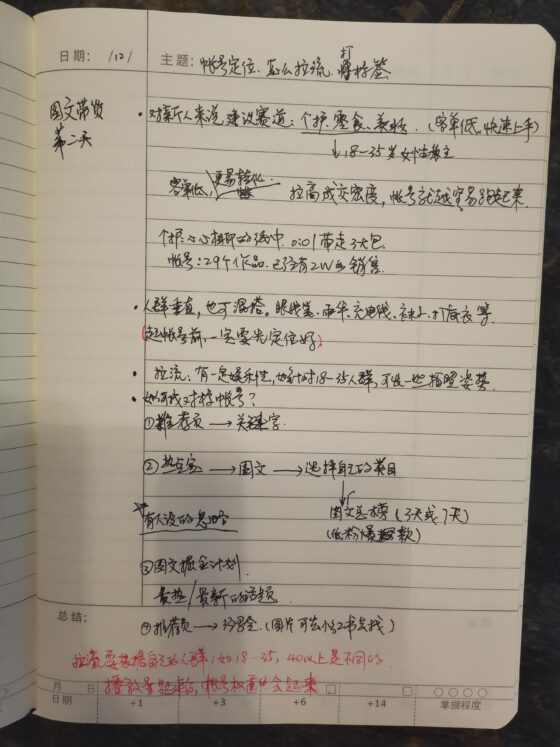 日期: /12/
主题: 帐号定位、怎么拉流、打标签
图文带货
第二天
• 对新人来说建议赛道: 个护、零食、美妆. (客单低、快速上手)
↓ 18-35岁女性为主
客单低, 更易转化. 拉高成交密度, 帐号就越容易跑起来.
个护: 心心相印的纸巾. 0.01带走3大包
帐号: 29个作品. 已经有2W的销售.
• 人群垂直, 也可混搭. 眼线笔、雨伞、充电线、袜子、打底衣等
(起帐号前, 一定要先定位好)
• 拉流: 有一定娱乐性, 如针对18-25人群, 可发一些拍照姿势.
• 如何找对标帐号?
①推荐页 → 关键字.
②热点宝 → 图文 → 选择自己的类目
图文总榜 (3天或7天)
(低粉爆款)
有人设的思路
③图文掘金计划.
最热/最新的话题.
总结:
④推荐页 → (图片可去小红书去找)
拉流要根据自己的人群, 如18-35, 40以上是不同的.
播放量起来后, 帐号权重也会起来
月 日
日期 +1 +3 +6 +14 掌握程度